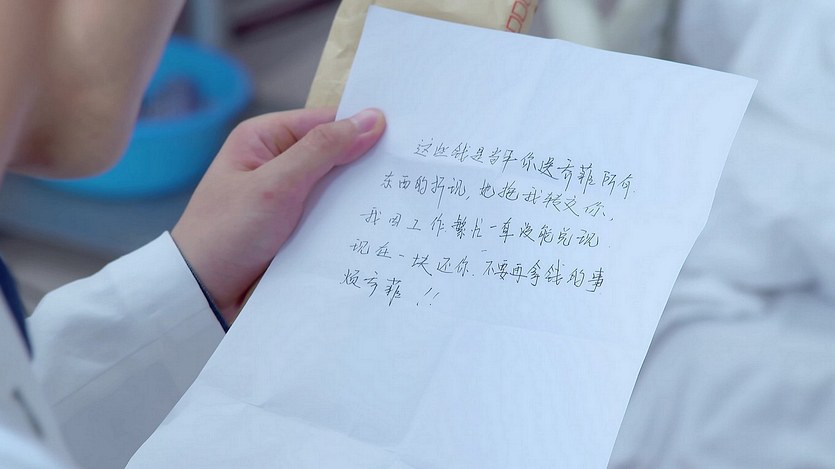 这些钱是当年你送乔菲所有
东西的折现，她拖我转交你，
我因工作繁忙一直没能兑现
现在一块还你.不要再拿钱的事
烦乔菲！！